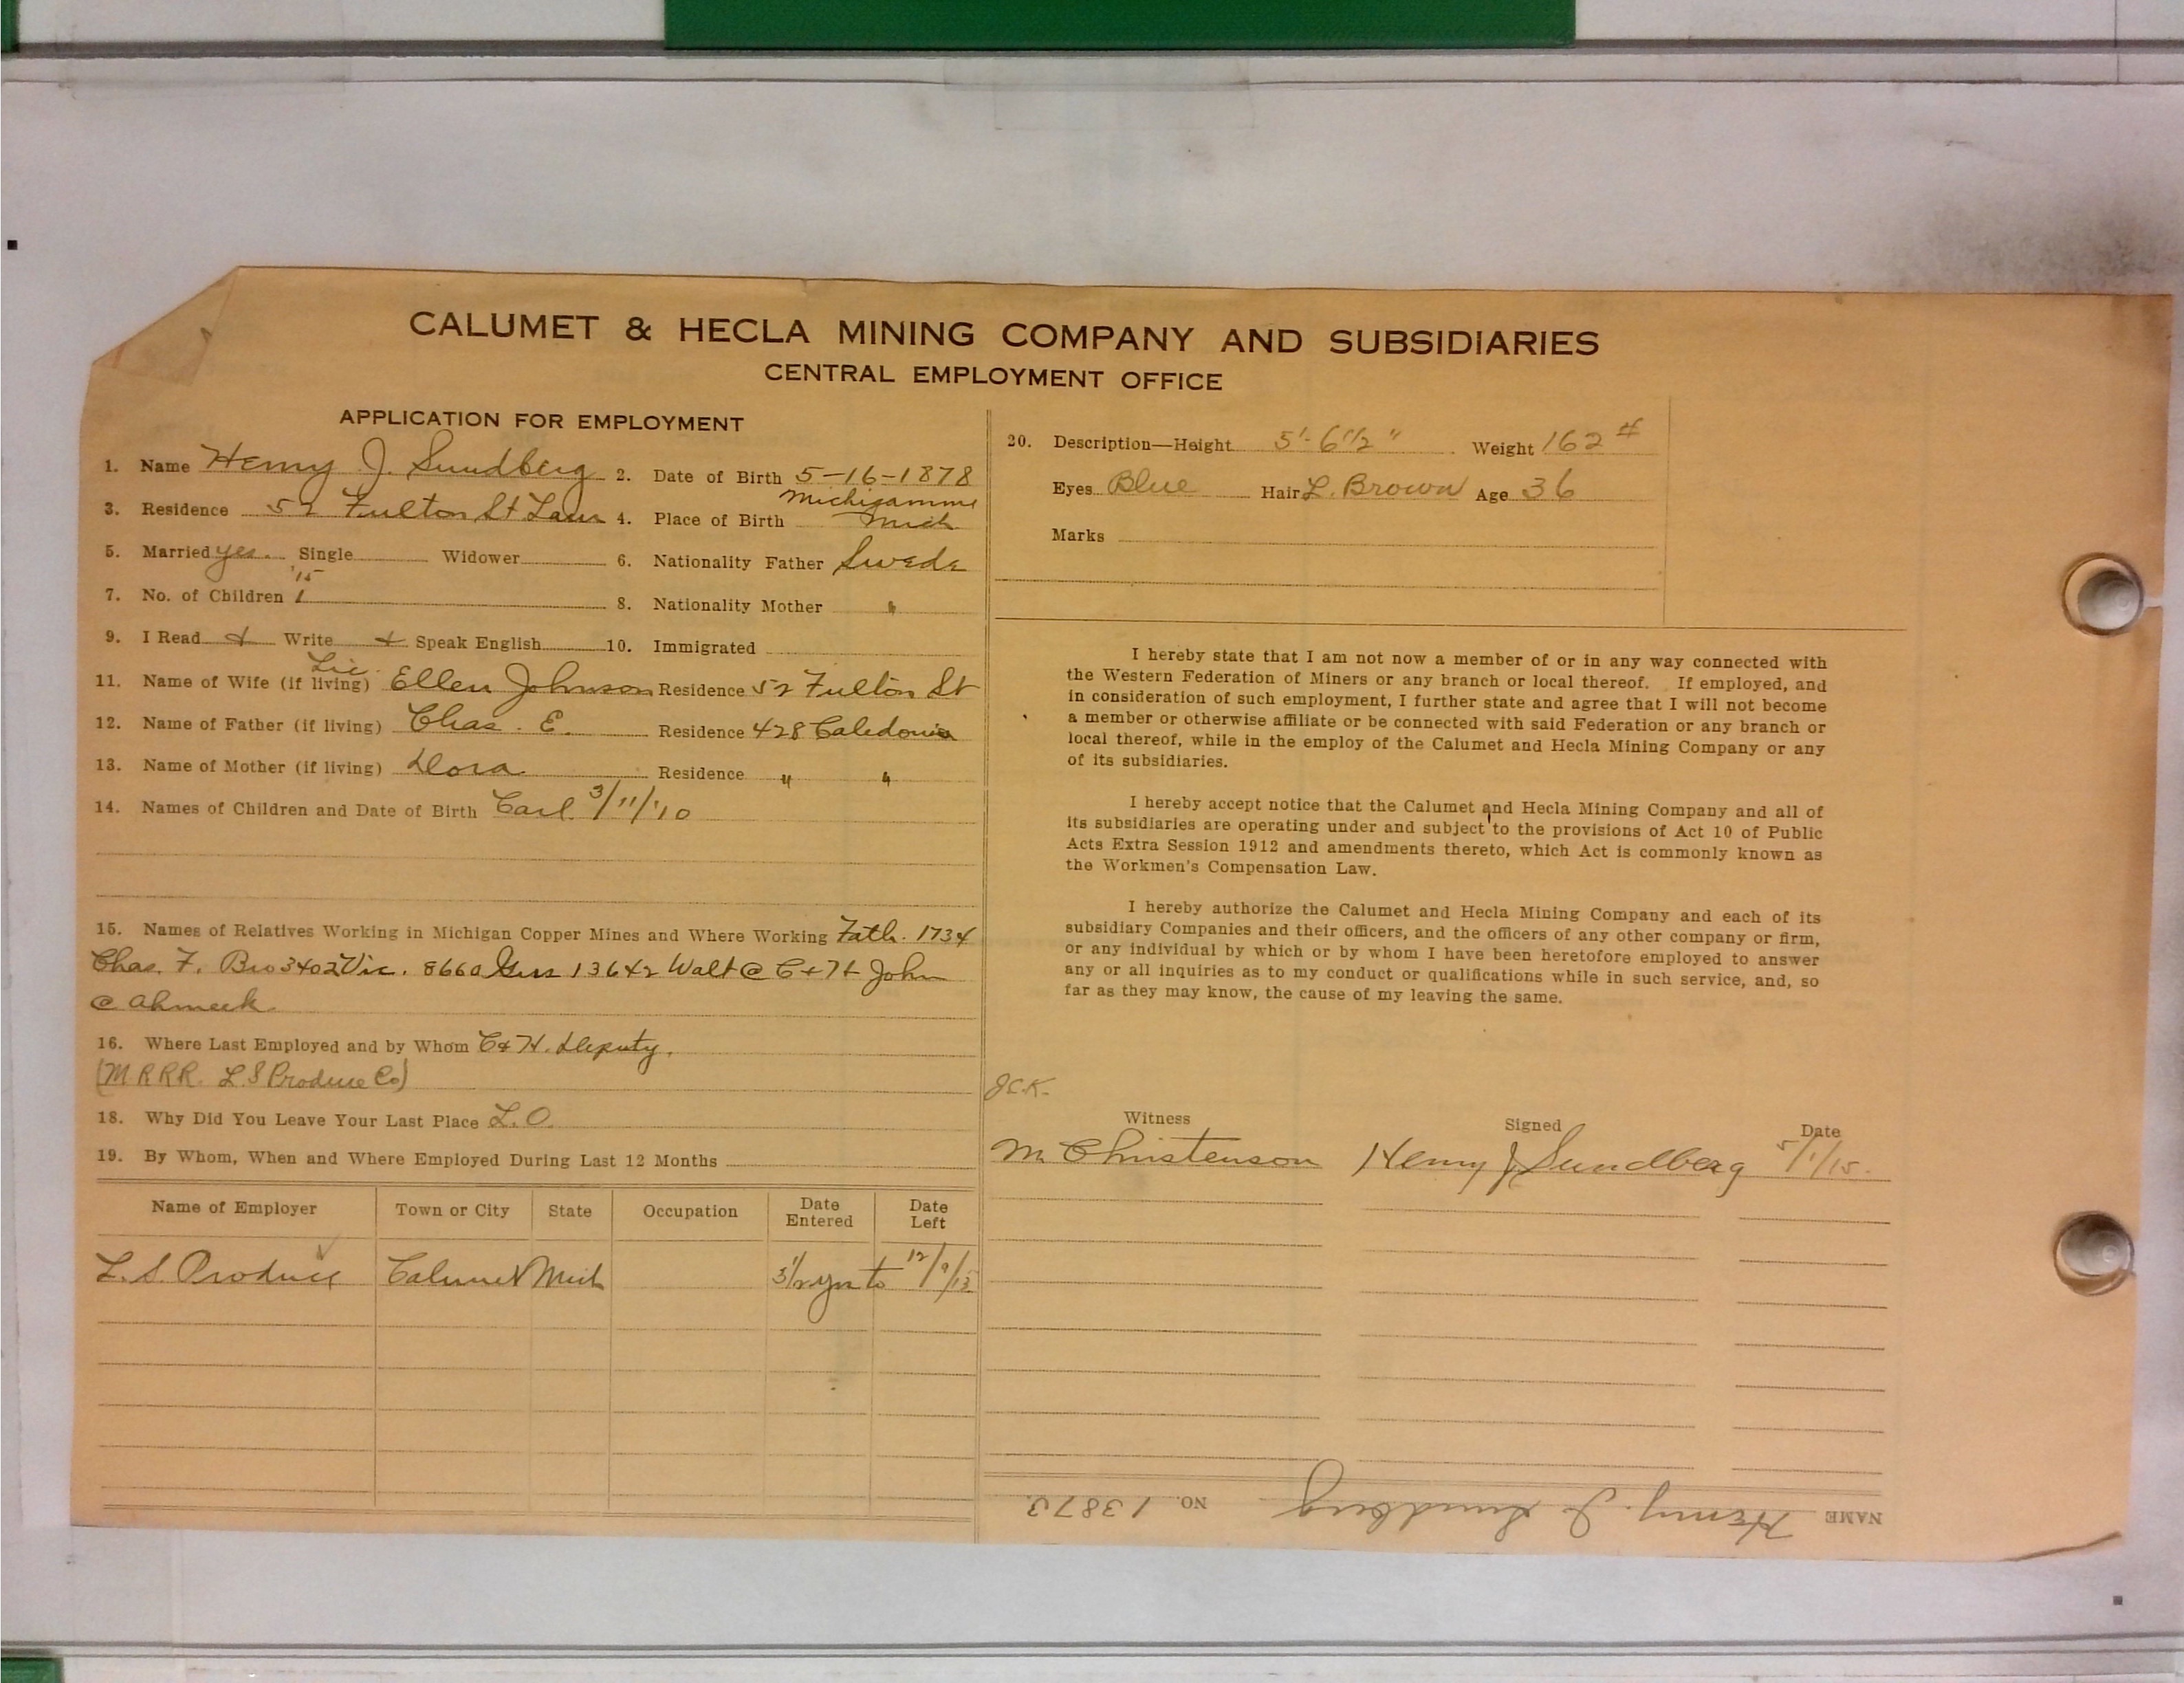 CALUMET & HECLA MINING COMPANY AND SUBSIDIARIES
CENTRAL EMPLOYMENT OFFICE
APPLICATION FOR EMPLOYMENT
1. Name Henry J. Sundberg 2. Date of Birth 5-16-1878
3. Residence 52 Fulton St Laur 4. Place of Birth Michigamme Mich
5. Married yes. Single Widower 6. Nationality Father Swede
7. No. of Children 1 '15 8. Nationality Mother "
9. I Read + Write + Speak English 10. Immigrated
11. Name of Wife (if living) Ellen Johnson Residence 52 Fulton St
12. Name of Father (if living) Chas. E. Residence 428 Caledonia
13. Name of Mother (if living) Dora Residence " "
14. Names of Children and Date of Birth Carl 3/11/'10
15. Names of Relatives Working in Michigan Copper Mines and Where Working Fath. 1734
Chas. F. Bro 3402 Vic. 8660 Gus 13642 Walt @ C+H John
@ Ahmeek
16. Where Last Employed and by Whom C & H. Deputy.
(M R RR. L. S Produce Co)
18. Why Did You Leave Your Last Place L. O.
19. By Whom, When and Where Employed During Last 12 Months
Name of Employer Town or City State Occupation Date Entered Date Left
L. S. Produce Calumet Mich yrs to 12/9/13
20. Description—Height 5'-6 1/2" Weight 162 #
Eyes Blue Hair L. Brown Age 36
Marks
I hereby state that I am not now a member of or in any way connected with
the Western Federation of Miners or any branch or local thereof. If employed, and
in consideration of such employment, I further state and agree that I will not become
a member or otherwise affiliate or be connected with said Federation or any branch or
local thereof, while in the employ of the Calumet and Hecla Mining Company or any
of its subsidiaries.
I hereby accept notice that the Calumet and Hecla Mining Company and all of
its subsidiaries are operating under and subject to the provisions of Act 10 of Public
Acts Extra Session 1912 and amendments thereto, which Act is commonly known as
the Workmen's Compensation Law.
I hereby authorize the Calumet and Hecla Mining Company and each of its
subsidiary Companies and their officers, and the officers of any other company or firm,
or any individual by which or by whom I have been heretofore employed to answer
any or all inquiries as to my conduct or qualifications while in such service, and, so
far as they may know, the cause of my leaving the same.
J.C.K.
Witness Signed Date
M Christenson Henry J Sundberg 5/1/15.
NAME Henry. J. Sundberg NO. 13873